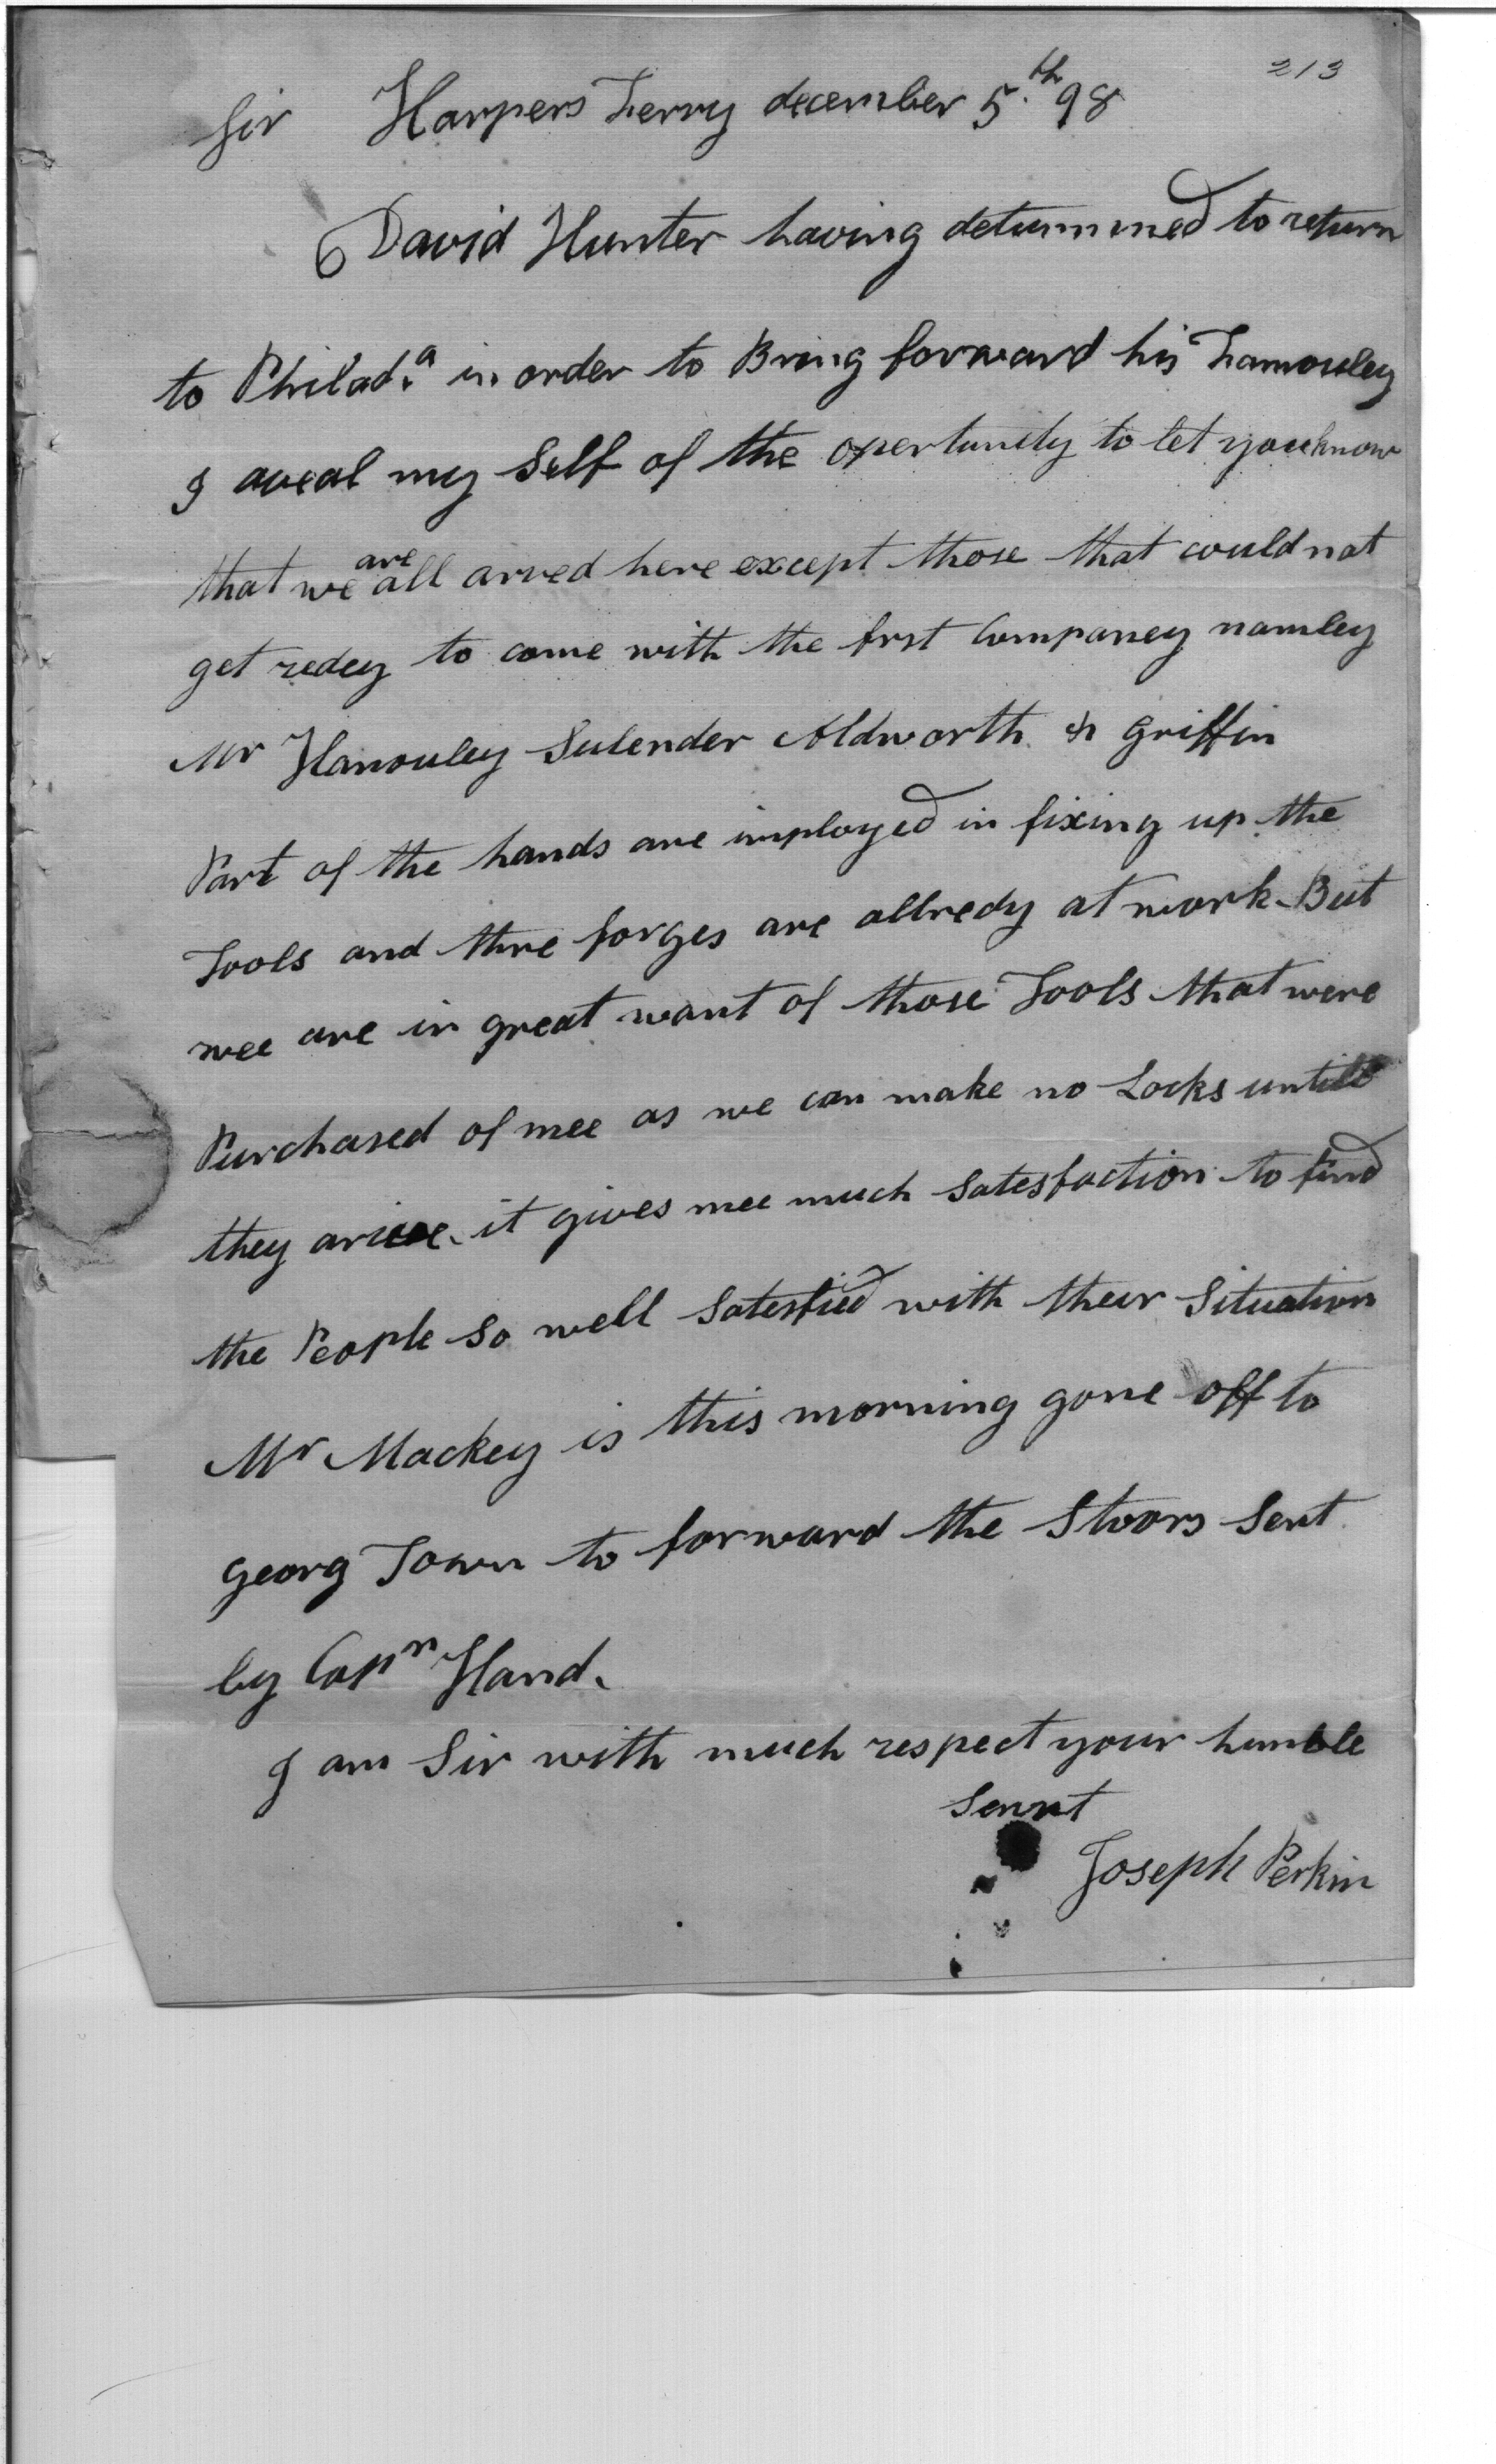 213
Sir Harpers Ferry december 5.th 98
David Hunter having determined to return
to Philad.a in order to Bring forward his Famouley
I aveal my Self of the opertunity to let you know
that we are all arved here except those that could not
get redey to come with the frst Companey namley
Mr Hanouley Sulender Aldworth & Griffin
Part of the hands are imployed in fixing up the
Tools and thre forges are allredy at work. But
wee are in great want of those Tools that were
Purchased of mee as we can make no Locks untill
they arive. it gives mee much Satesfaction to find
the People so well Satesfied with their Situation
Mr Mackey is this morning gone off to
georg Town to forward the Stoors Sent
by Capn Hand.
I am Sir with much respect your humble
Servnt
Joseph Perkin